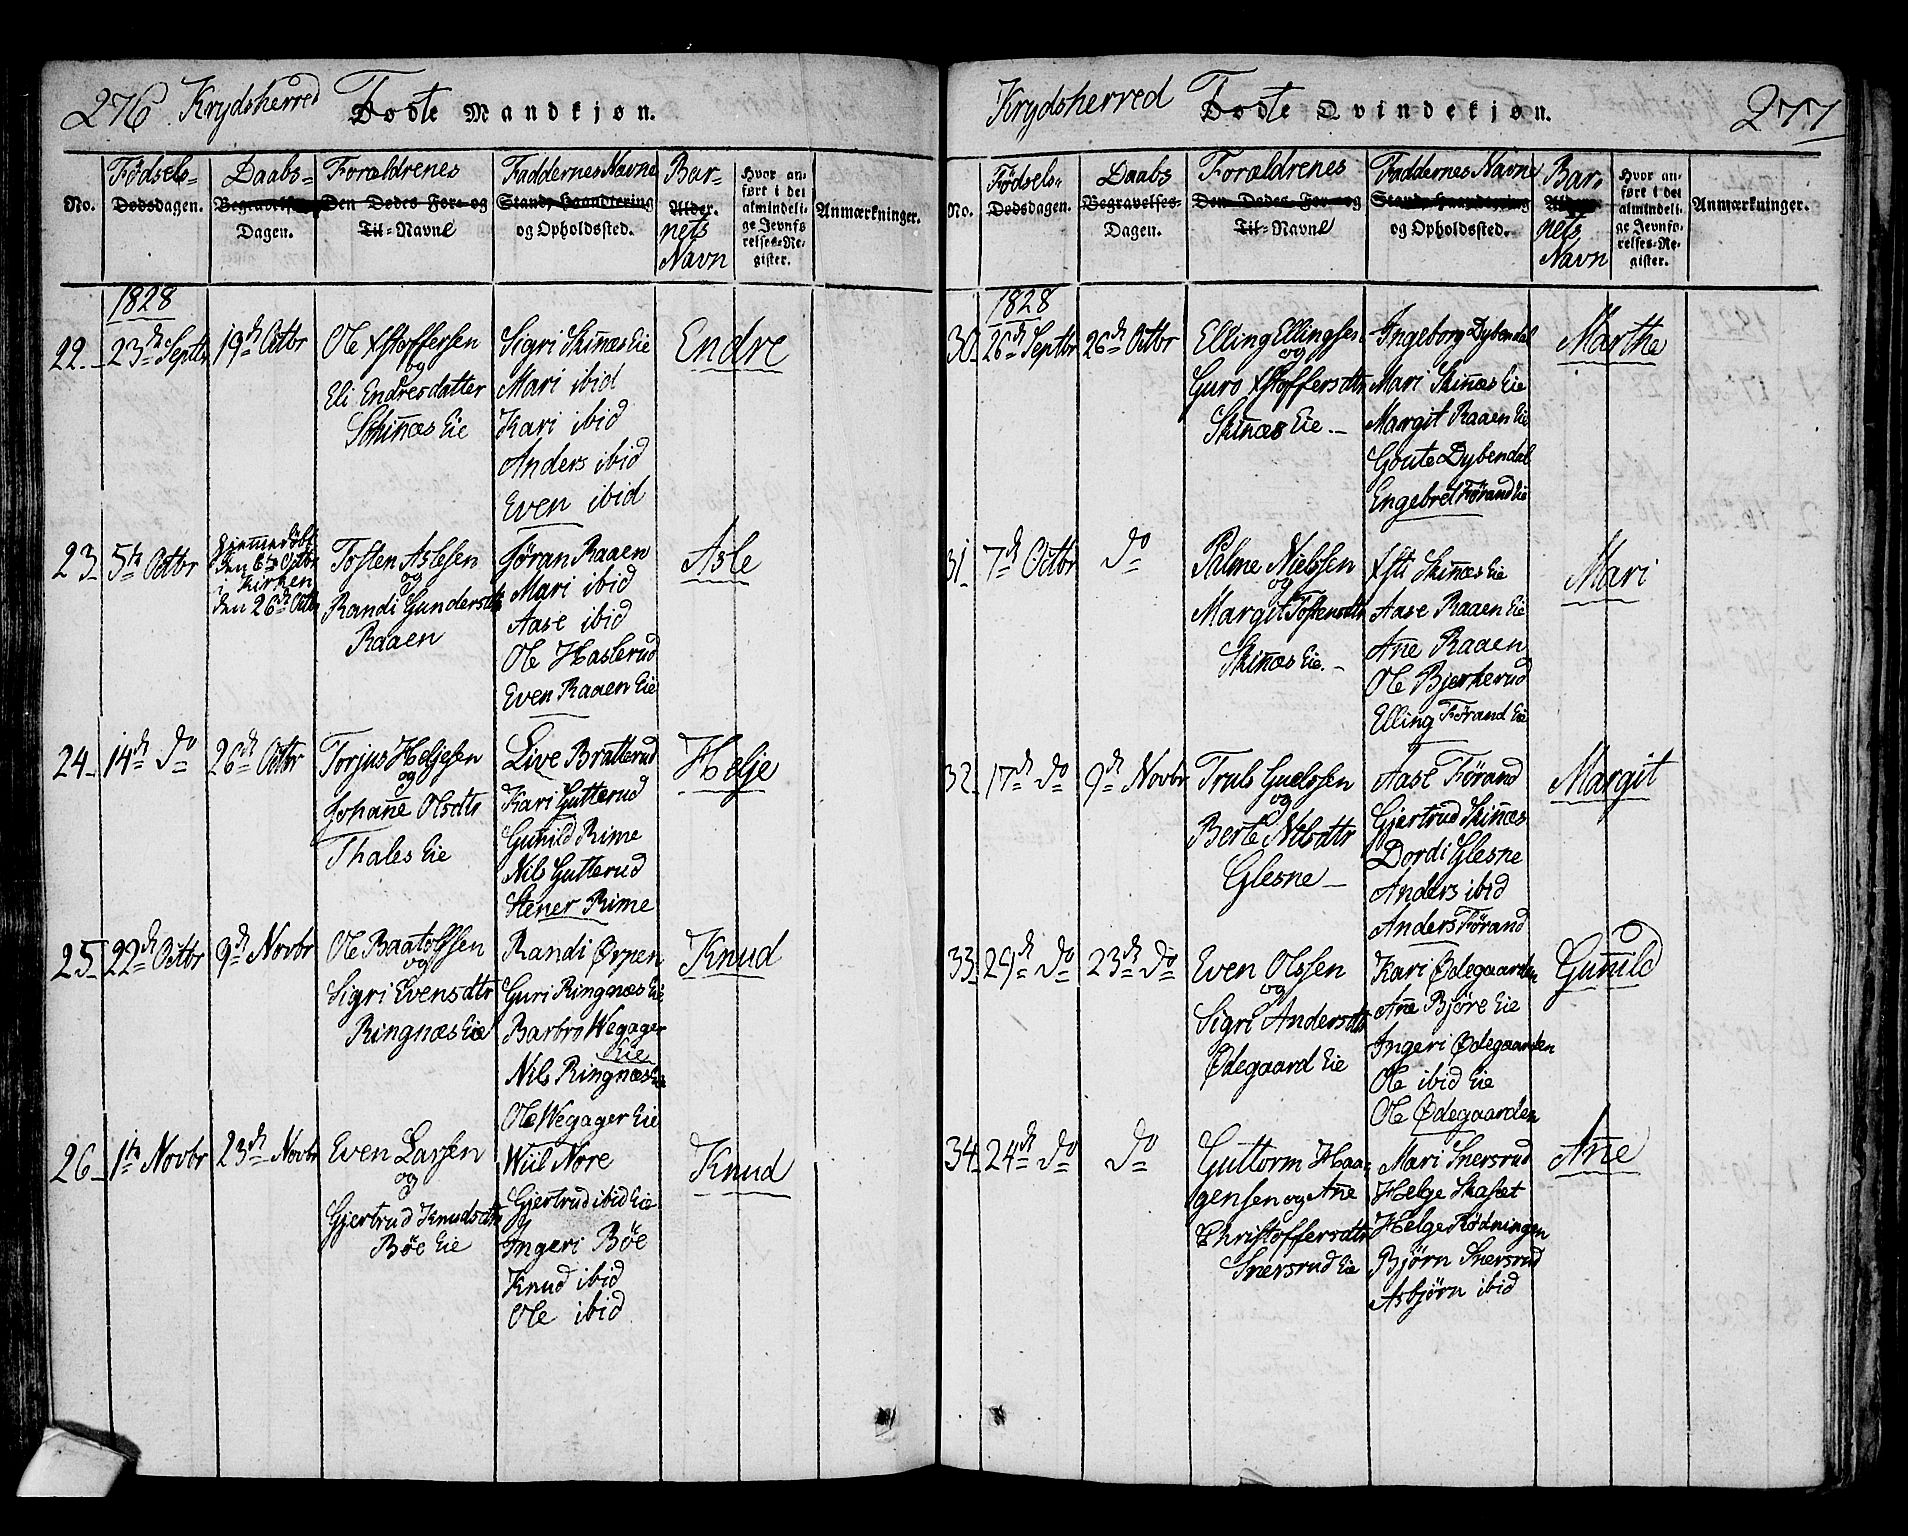 276 Krydsherred Fødte Mandkjøn.
No. Fødsels- Dødsdagen. Daabs- Begravelses- Dagen. Forældrenes Den Dødes For- og Til-Navne Faddernes Navne Stand, Haandtering og Opholdssted. Bar- Alder. nets Navn Hvor anført i det almindelige Jevnførelses-Register. Anmærkninger.
1828
22. 23de Septbr 19de Octbr
Ole Xstoffersen
og
Eli Endresdatter
Skinnes Eie
Sigri Skinnes Eie
Mari ibid
Kari ibid
Anders ibid
Even ibid
Endre
23 5te Octbr
Hjemmedøbt
den 6te Octbr
i Kirken
den 26de Octbr
Tosten Aslesen
og
Randi Gundersdtr
Raaen
Jøran Raaen
Mari ibid
Aase ibid
Ole Haslerud
Even Raaen Eie
Asle
24 14de do 26de Octbr
Torjus Heljesen
og
Johanne Olsdtr
Thales Eie
Live Bratterud
Kari Gutterud
Gunild Rime
Nils Gutterud
Stener Rime
Helje
25 22de Octbr 9de Novbr
Ole Baatolfsen
og
Sigri Evensdtr
Ringnæs Eie
Randi Ørpen
Guri Ringnæs Eie
Barbro Wegager
Eie
Nils Ringnæs Eie
Ole Wegager Eie
Knud
26 1te Novbr 23de Novbr
Even Larsen
og
Gjertrud Knudsdtr
Bøe Eie
Wiil Nore
Gjertrud ibid Eie
Ingeri Bøe
Knud ibid
Ole ibid
Knud
Krydsherred Fødte Qvindekjøn. 277
No. Fødsels- Dødsdagen. Daabs Begravelses- Dagen. Forældrenes Den Dødes For- og Til-Navne Faddernes Navne Stand, Haandtering og Opholdssted. Bar- Alder. nets Navn Hvor anført i det almindelige Jevnførelses-Register. Anmærkninger.
1828
30 26de Septbr 26de Octbr
Elling Ellingsen
og
Guro Xstoffersdtr
Skinnes Eie
Ingeborg Dybendal
Mari Skinnes Eie
Margit Raaen Eie
Goute Dybendal
Engebret Førand Eie
Marthe
31 7de Octbr do
Palme Nielssen
og
Margit Tostensdtr
Skinnes Eie
Xsti Skinnes Eie
Aase Raaen Eie
Ane Raaen
Ole Bjerkerud
Elling Førand Eie
Mari
32 17de do 9de Novbr
Truls Guelssen
og
Berte Nilsdtr
Glesne
Aase Førand
Gjertrud Skinnes
Dordi Glesne
Anders ibid
Anders Førand
Margit
33 29de do 23de do
Even Olssen
og
Sigri Andersdtr
Ødegaard Eie
Kari Ødegaarden
Ane Bjøre Eie
Ingeri Ødegaarden
Ole ibid Eie
Ole Ødegaarden
Gunild
34 24de do do
Guttorm Haa-
gensen og Ane
Christoffersdtr
Snersrud Eie
Mari Snersrud
Helge Skaset
Helge Rødningen
Bjørn Snersrud
Asbjørn ibid
Ane